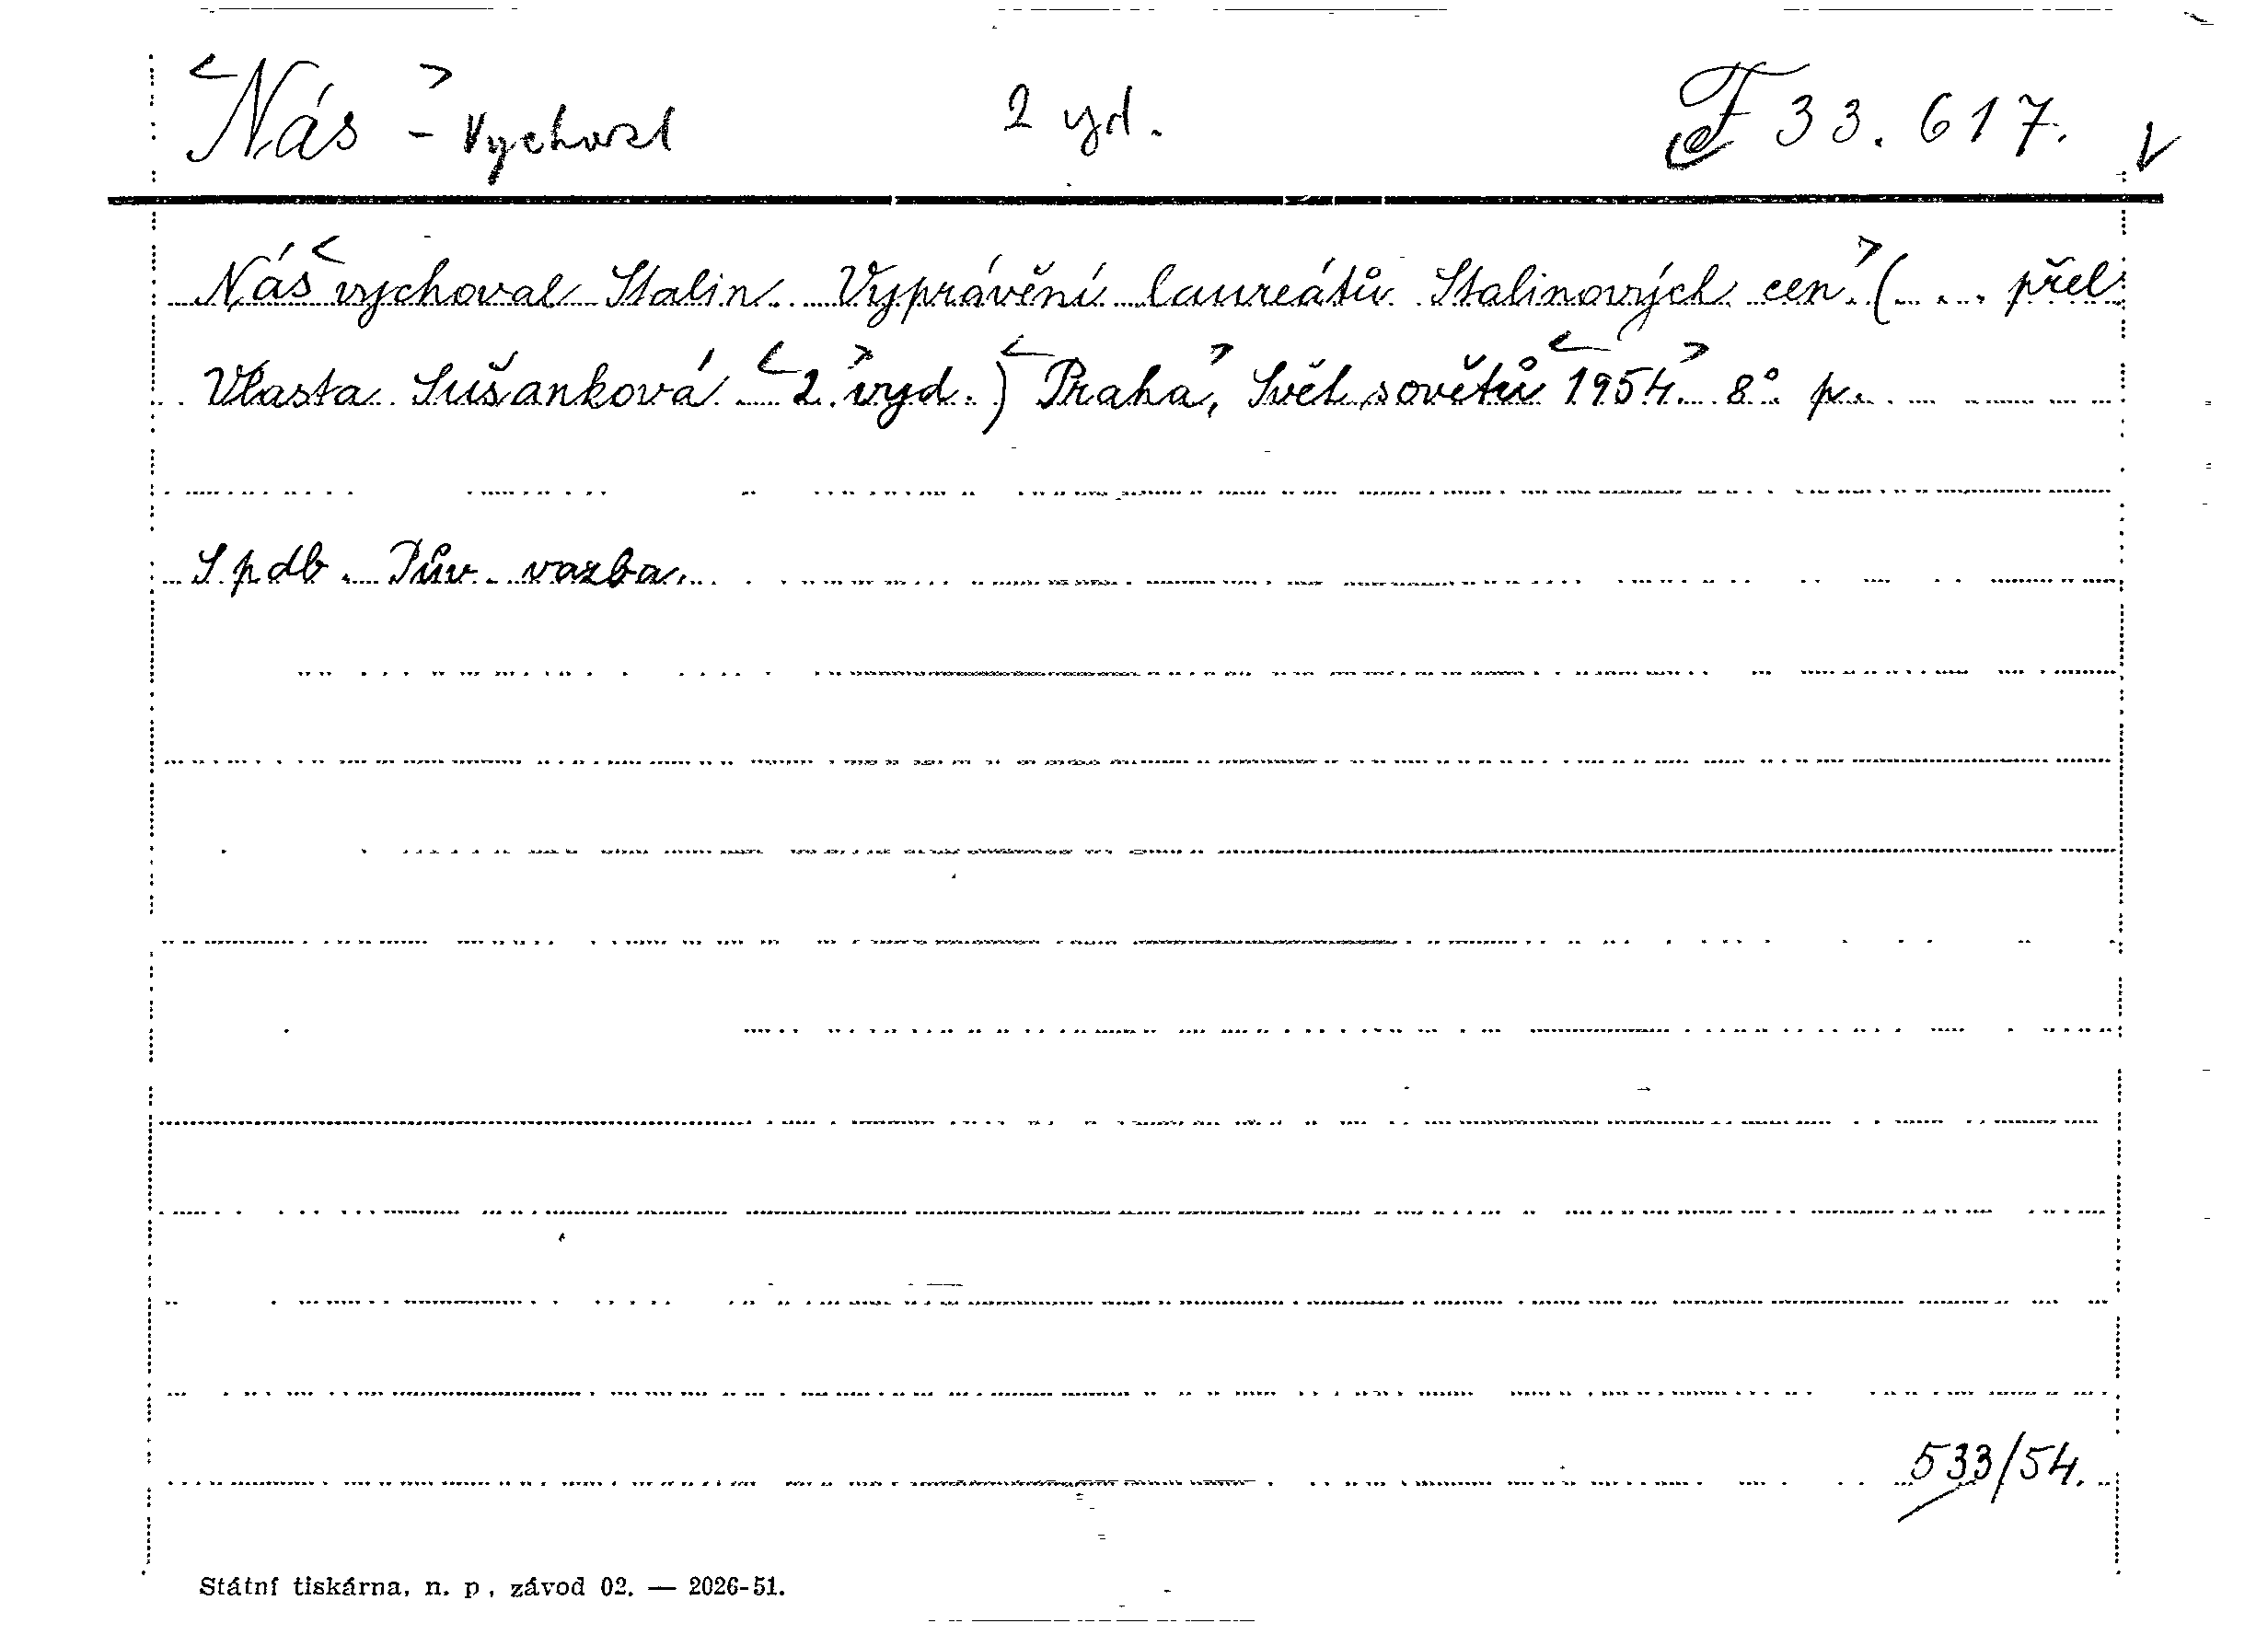 <Nás> - vychoval 2 vyd. F 33.617. V
Nás <vychoval Stalin. Vyprávění laureátů Stalinových cen.> (... přel
Vlasta Sušanková <2.> vyd.) <Praha>, Svět sovětů <1954.> 8° p.
S pdb. Pův. vazba.
533/54.
Státní tiskárna, n. p., závod 02. — 2026-51.